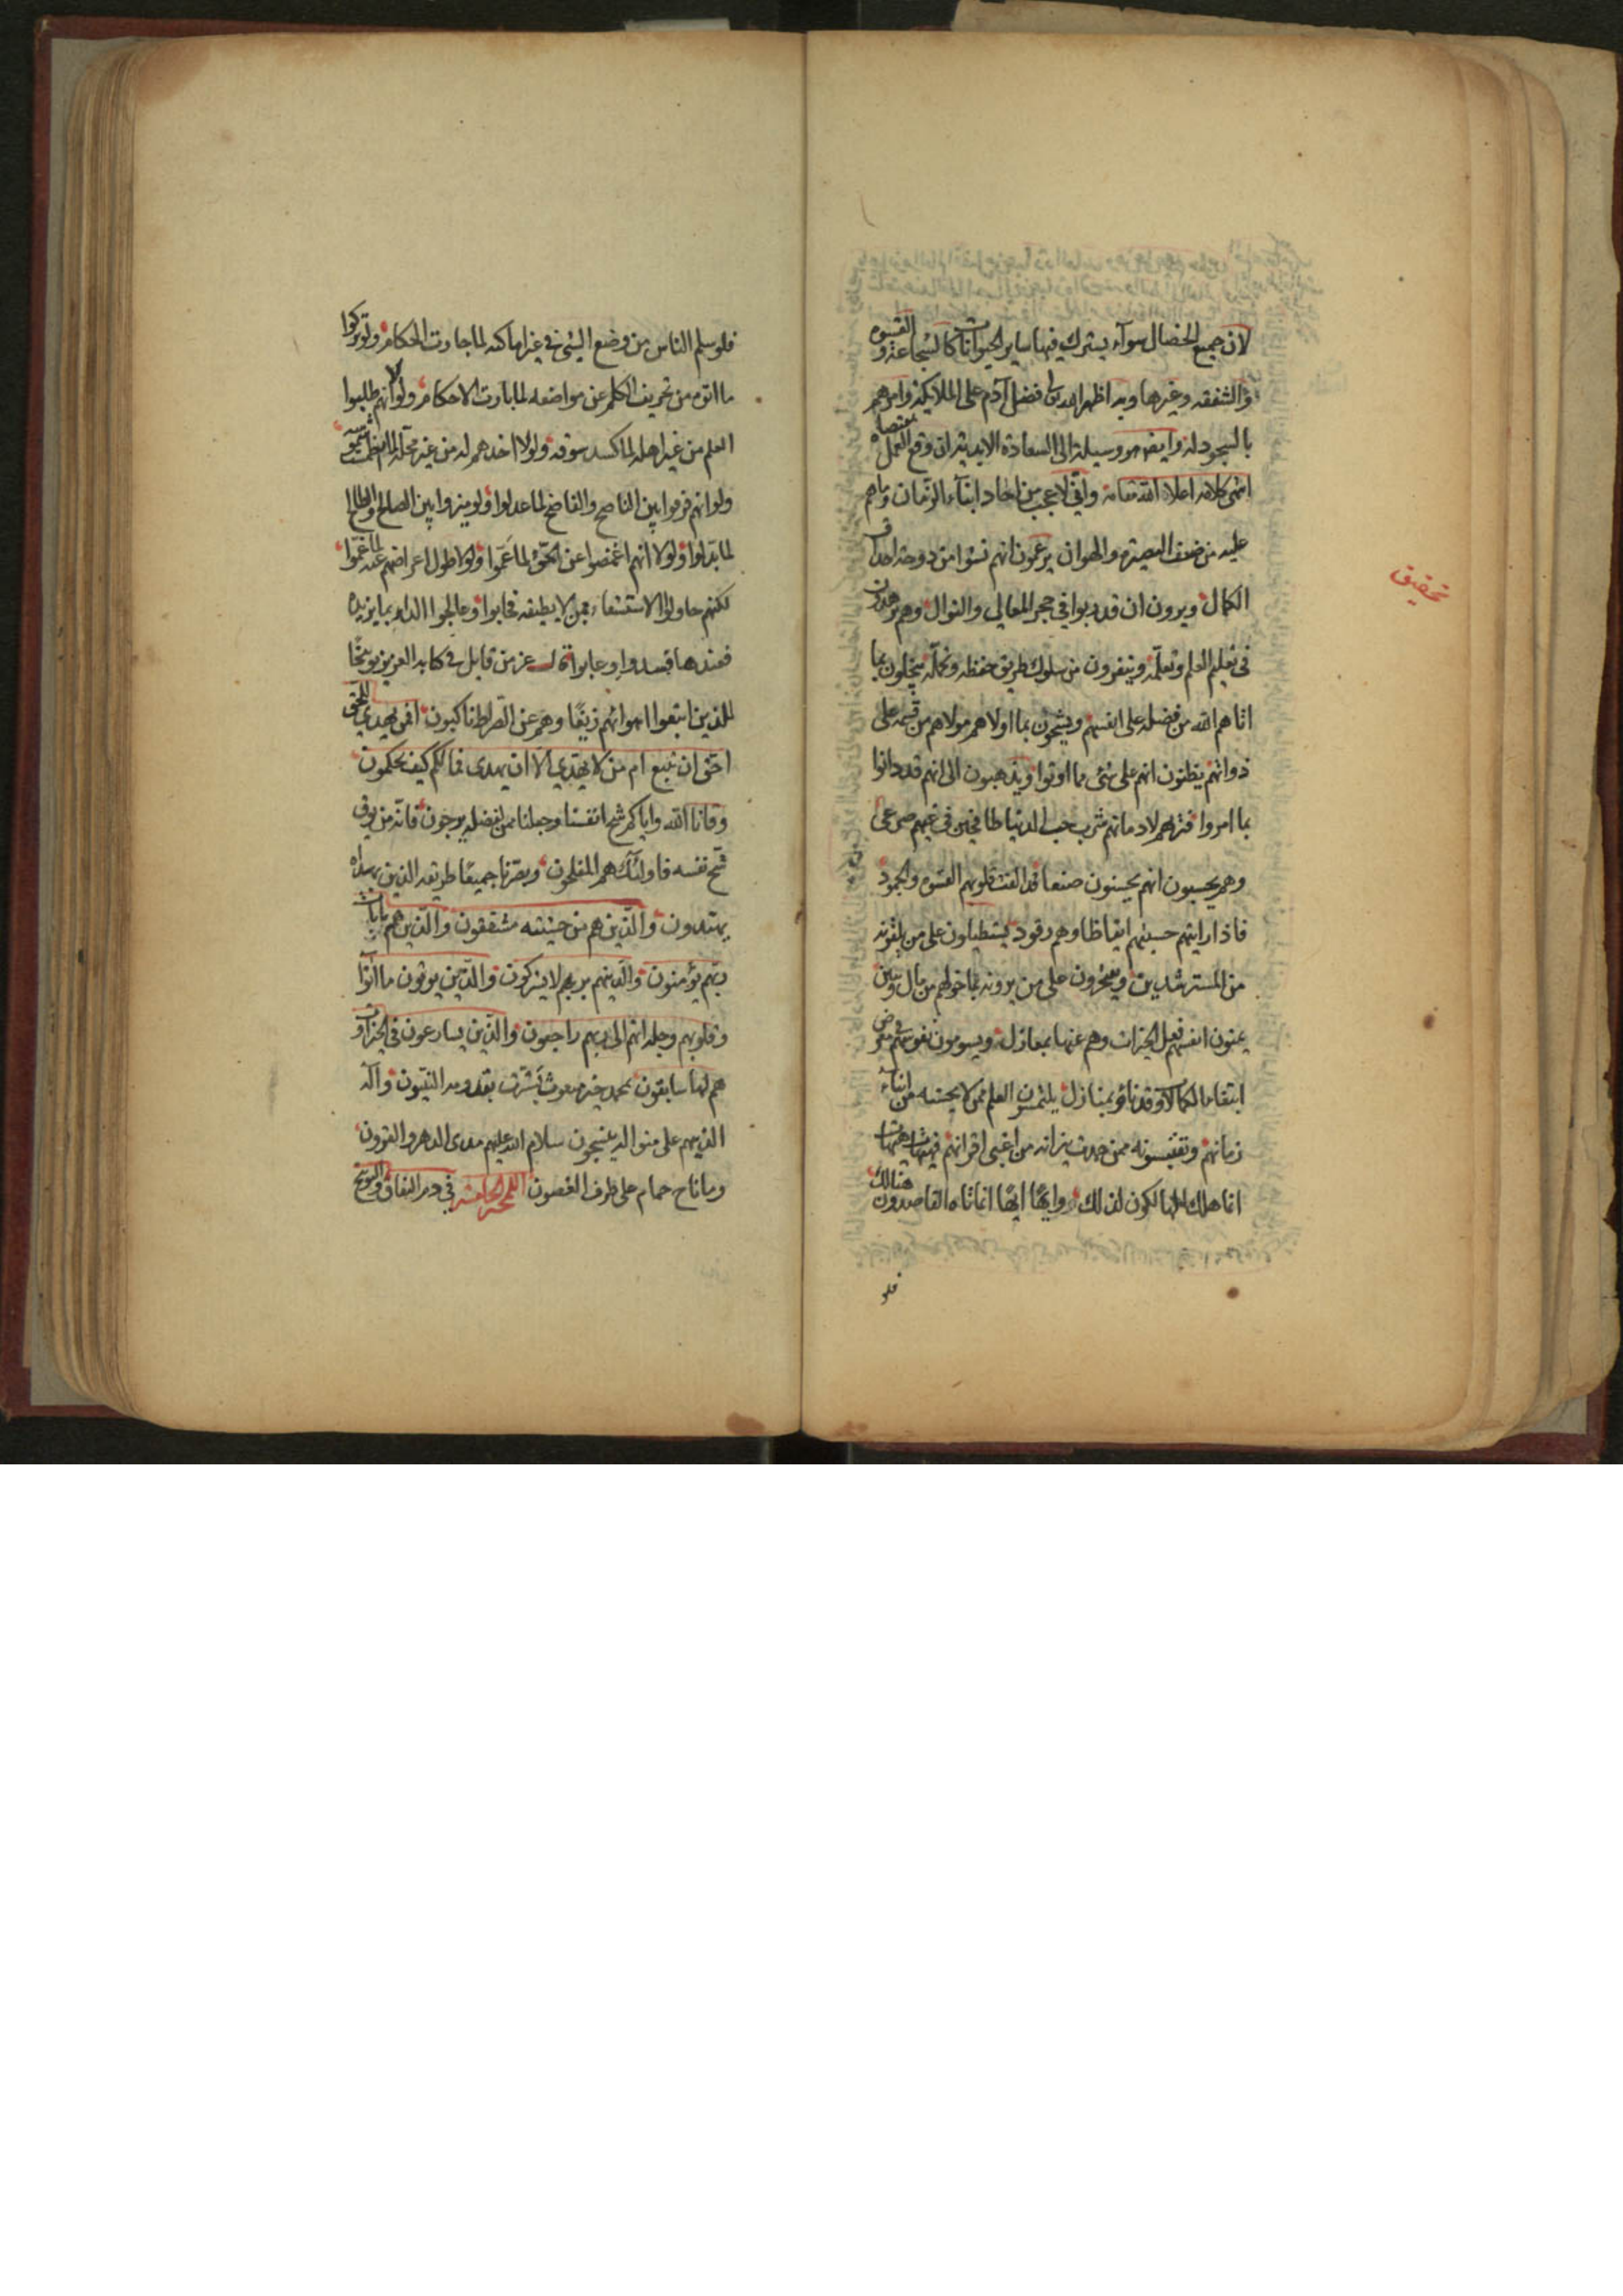 لان جميع الخصال سواه يشترك فيها ساير الحيوانات كالشجاعة والقسوة
والشفقه وغيرها وبه اظهر الله تعالى فضل آدم على الملائكة وامرهم
بالسجود له وايضا هو وسيلة الى السعادة الابدية ان وقع العمل بمقتضاه
انتهى كلامه اعلا الله مقامه واني لاعجب من احاد ابناء الزمان وما هم
عليه من ضعف البصيرة والهوان يزعمون انهم نشوا من دوحة احداق
الكمال ويرون ان قد ربوا في حجر المعالي والنوال وهم يزهدون
في تعليم العلم وتعلمه وينفرون من سلوك طريق حفظه وتحمله يبخلون بما
اتاهم الله من فضله على انفسهم ويشحون بما اولاهم مولاهم من قسمه على
ذواتهم يظنون انهم على شئ مما اوتوا ويذهبون الى انهم قد دانوا
بما امروا فتريهم لادمانهم شرب حب الدنيا طافحين في غيهم صرعى
وهم يحسبون انهم يحسنون صنعا قد الفت قلوبهم القسوه والجمود
فاذا رايتهم حسبتهم ايقاظا وهم رقود يستطيلون على من يلقونه
من المسترشدين ويفخرون على من يرونه بما خولهم من مال وبنين
يمنون انفسهم فعل الخيرات وهم عنها بمعازل ويسومون نفوسهم في معرض
ابتغاء الكمالات وقد ناؤ بمنازل يلتمسون العلم ممن لا يحسنه من ابناء
زمانهم وتقتبسونه ممن خمدت نيرانه من اغبى اقرانهم فهيهات هيهات
انما هلك الهالكون لذلك وايها ايها انما تاه القاصدون هنالك
فلو
تحقيق
فلو سلم الناس من وضع الشئ في غير اماكنه لما جارت الحكام ولو تركوا
ما اتوه من تحريف الكلم عن مواضعه لما بارت الاحكام ولولا انهم طلبوا
العلم من غير اهله لما كسد سوقه ولولا اخذهم له من غير محله لما انطمست
ولو انهم فرقوا بين الناصح والفاضح لما عدلوا ولو ميزوا بين الصالح والطالح
لما بدلوا ولولا انهم اغمضوا عن الحق لما عموا ولولا طول اعراضهم عنه لما غموا
لكنهم حاولوا الاستشفاء ممن لا يطيقه فخابوا وعالجوا الداء بما يزيده
فعندها فسدوا وعابوا قال عز من قايل في كتابه العزيز توبيخا
للذين اتبعوا اهوائهم زيغا وهم عن الصراط ناكبون افمن يهدي الى الحق
احق ان يتبع ام من لا يهدي الا ان يهدى فما لكم كيف تحكمون
وقانا الله واياكم شح انفسنا وجعلنا ممن لفضله يرجون فانه من يوق
شح نفسه فاولئك هم المفلحون وبصرنا جميعا طريقه الذين بهداه
يهتدون والذين هم من خشيته مشفقون والذين هم بايات
ربهم يؤمنون والذينهم بربهم لا يشركون والذين يوتون ما اتوا
وقلوبهم وجلة انهم الى ربهم راجعون والذين يسارعون في الخيرات و
هم لها سابقون بمحمد خير مبعوث بشرت بقدومه النبيون وآله
الذينهم على منواله ينسجون سلام الله عليهم مدى الدهر والقرون
وما ناح حمام على طرف الغصون اللمحة الخامسة في ذم النفاق والتوبيخ